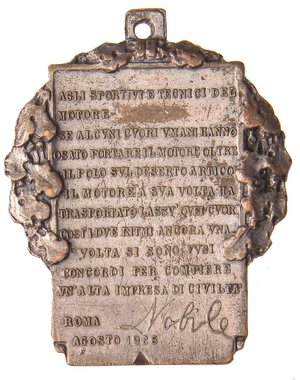 AGLI SPORTIVI E TECNICI DEL
MOTORE
SE ALCUNI CUORI UMANI HANNO
OSATO PORTARE IL MOTORE OLTRE
IL POLO SUL DESERTO ARTICO
IL MOTORE A SVA VOLTA HA
TRASPORTATO LASSV' QVEI CVOR
COSI' DVE RITMI ANCORA VNA
VOLTA SI SONO FVSI
CONCORDI PER COMPIERE
VN'ALTA IMPRESA DI CIVILTA'
ROMA
Nobile
AGOSTO 1926